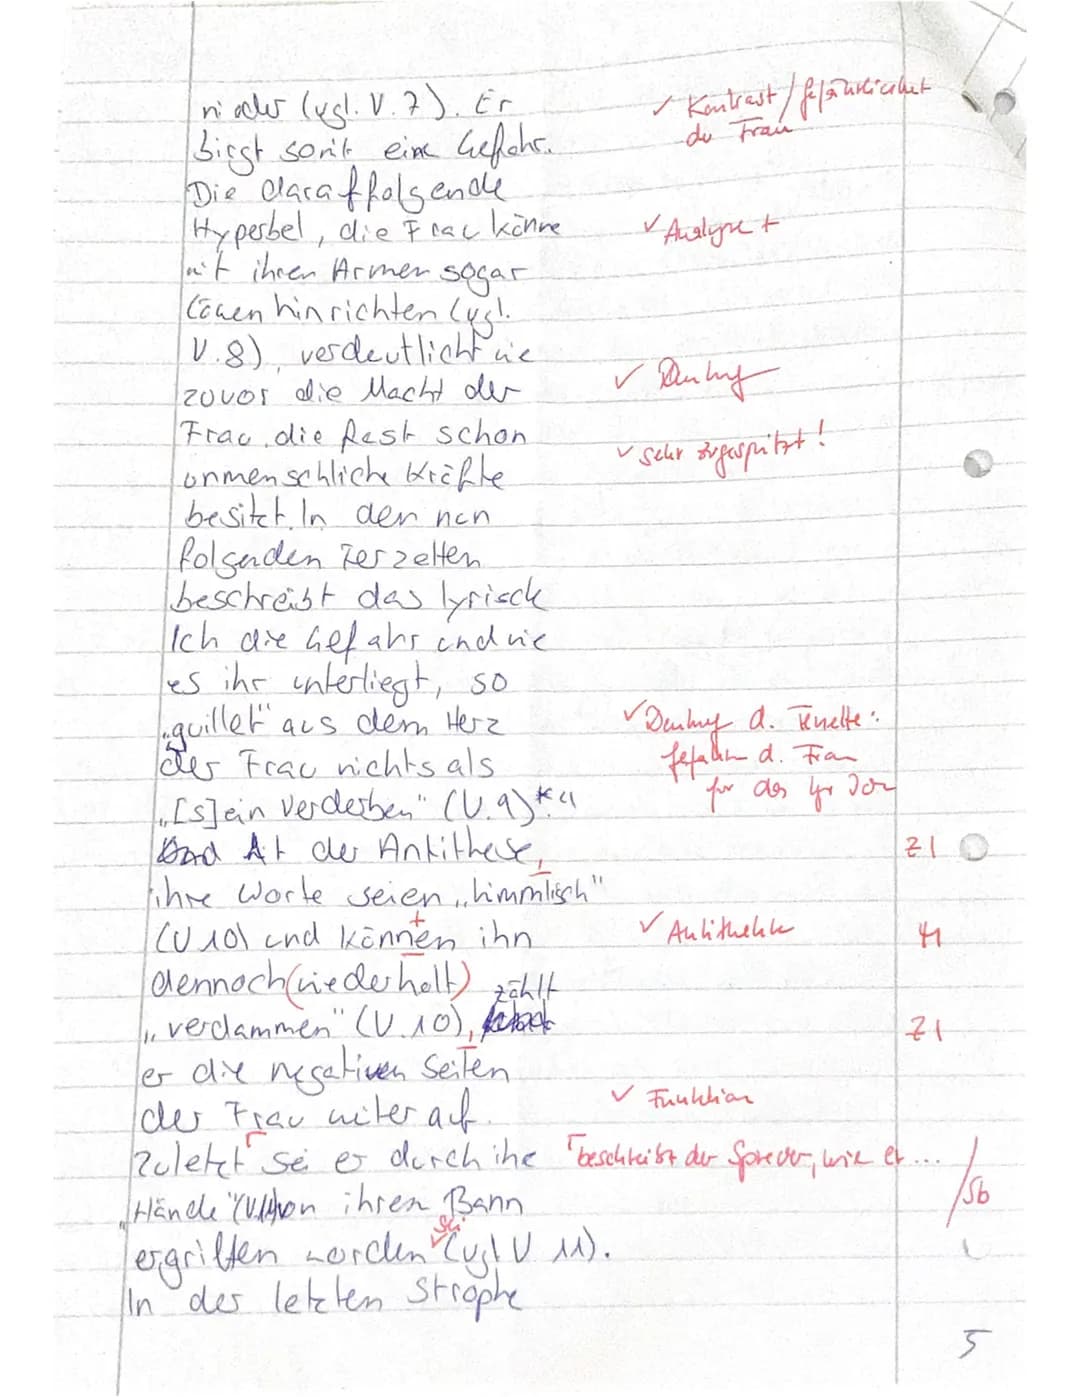 nieder (vgl. V. 7). Er
birgt somit eine Gefahr.
✓ Kontrast / Gefährlichkeit
der Frau
Die darauffolgende
Hyperbel, die Frau könne
✓ Analyse +
mit ihren Armen sogar
Löwen hinrichten (vgl.
V. 8), verdeutlicht wie
zuvor die Macht der
✓ Deutung
Frau, die fast schon
✓ sehr zugespitzt!
unmenschliche Kräfte
besitzt. In den nun
folgenden Terzetten
beschreibt das lyrische
Ich die Gefahr und wie
es ihr unterliegt, so
„quillet" aus dem Herz
✓ Deutung d. Terzette:
der Frau nichts als
Gefahr d. Frau
für das lyr Ich
„[s]ein Verderben" (V. 9)*
Mit der Antithese,
Z 1
ihre Worte seien „himmlisch"
(V 10) und können ihn
✓ Antithetik
dennoch (wiederholt)
zählt
„verdammen" (V. 10),
Z 1
er die negativen Seiten
der Frau weiter auf.
✓ Funktion
Zuletzt sei er durch ihre
beschreibt der Sprecher, wie er ...
/Sb
„Hände" (V.11) von ihrem Bann
sei
ergriffen worden (vgl V 11).
In der letzten Strophe
5